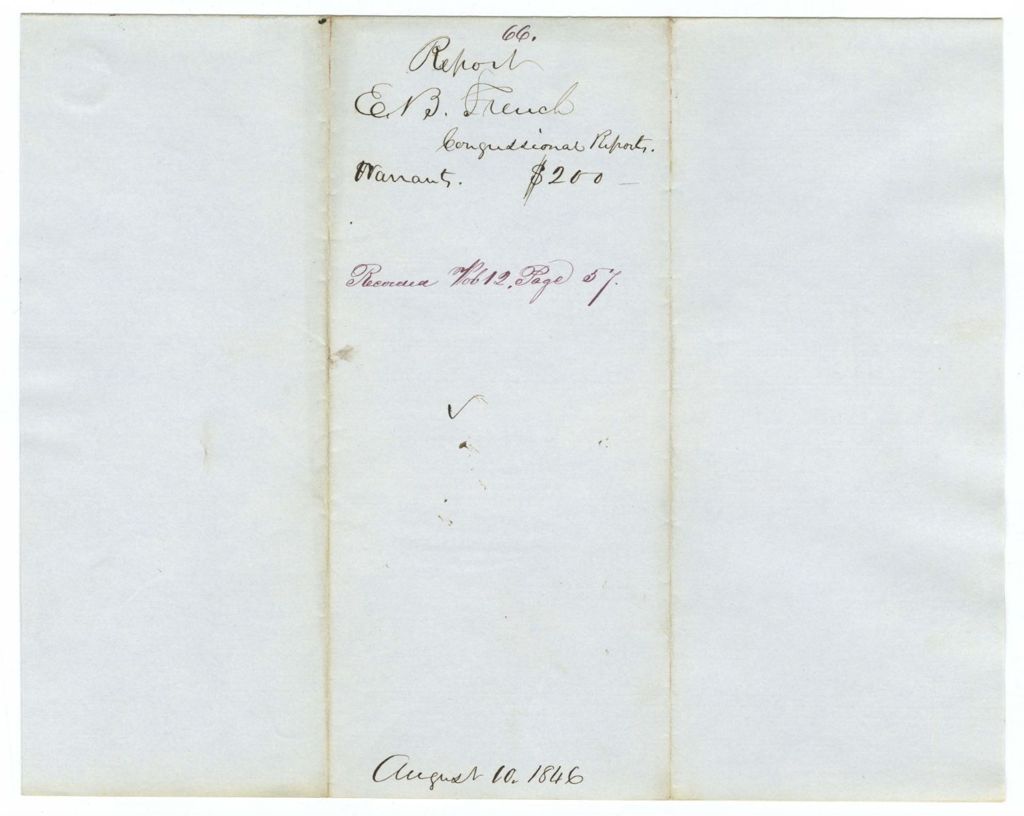 66.
Report
E. B. French
Congressional Reports.
Warrant. $200 —
Recorded Vol 12, Page 57.
August 10. 1846